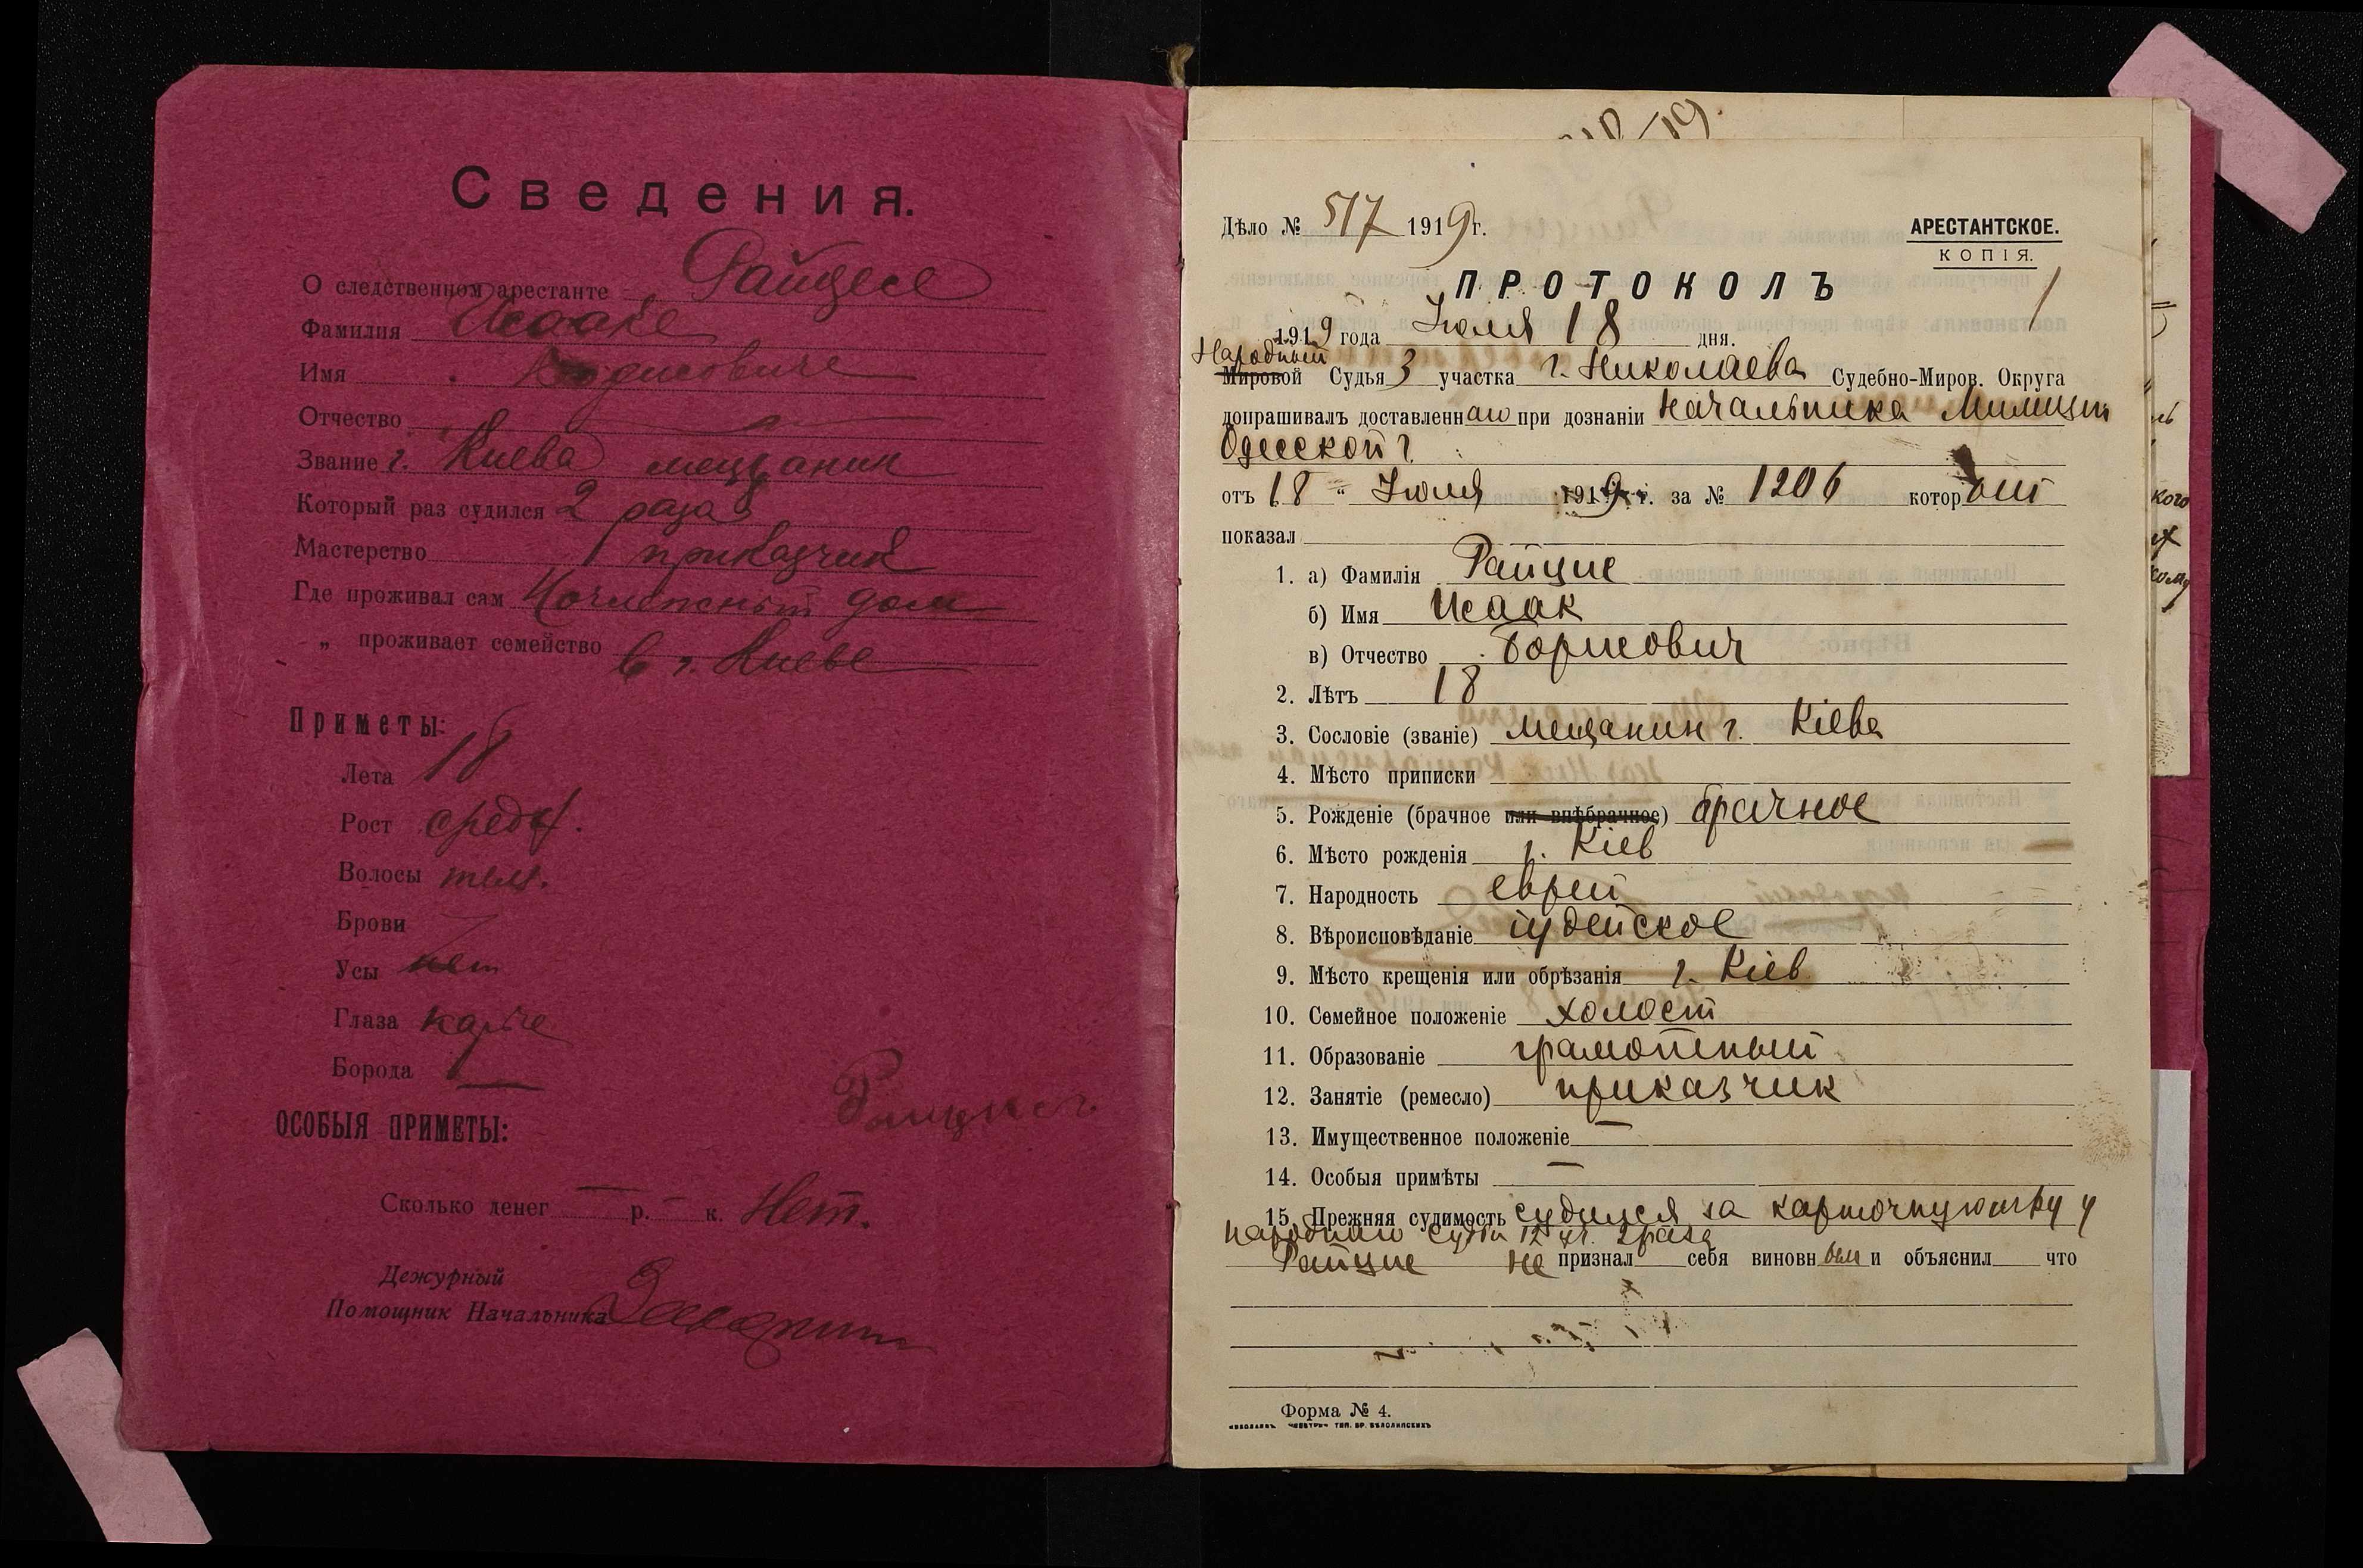 Сведения.
О следственном арестанте Райцесе
Фамилия Исааке
Имя Борисовиче
Отчество
Звание г. Киева мещанин
Который раз судился 2 раза
Мастерство приказчик
Где проживал сам Ночлежный дом
„ проживает семейство в г. Киеве
Приметы:
Лета 18
Рост средн.
Волосы темн.
Брови
Усы нет
Глаза карие
Борода —
ОСОБЫЯ ПРИМЕТЫ:
Сколько денег — р. — к. Нет.
Дежурный
Помощник Начальника
Дѣло № 517 1919 г.
АРЕСТАНТСКОЕ.
КОПІЯ.
ПРОТОКОЛЪ
1
1919 года Июля 18 дня.
Народный
Мировой Судья 3 участка г. Николаева Судебно-Миров. Округа
допрашивалъ доставленнаго при дознаніи Начальника Милиции
Одесской г.
отъ 18 " Июля 1919 г. за № 1206 который
показал
1. а) Фамилія Райцис
б) Имя Исаак
в) Отчество Борисович
2. Лѣтъ 18
3. Сословіе (званіе) мещанин г. Кіева
4. Мѣсто приписки
5. Рожденіе (брачное или внѣбрачное) брачное
6. Мѣсто рожденія г. Кіев
7. Народность еврей
8. Вѣроисповѣданіе іудейское
9. Мѣсто крещенія или обрѣзанія г. Кіев
10. Семейное положеніе холост
11. Образованіе грамотный
12. Занятіе (ремесло) приказчик
13. Имущественное положеніе —
14. Особыя примѣты —
15. Прежняя судимость судился за карточную игру у
народнаго судьи 12 уч. 2 раза
Райцис не признал себя виновным и объяснил что
Форма № 4.